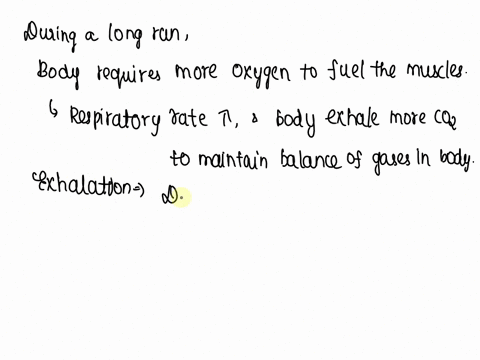 During a long run,
Body requires more oxygen to fuel the muscles.
↳ Respiratory rate ↑, & Body exhale more CO2
to maintain balance of gases in body.
Exhalation ⇒ D.